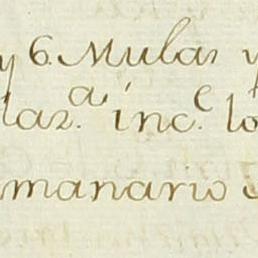 y 6. Mulas y
laz.a inc.e lo
manario